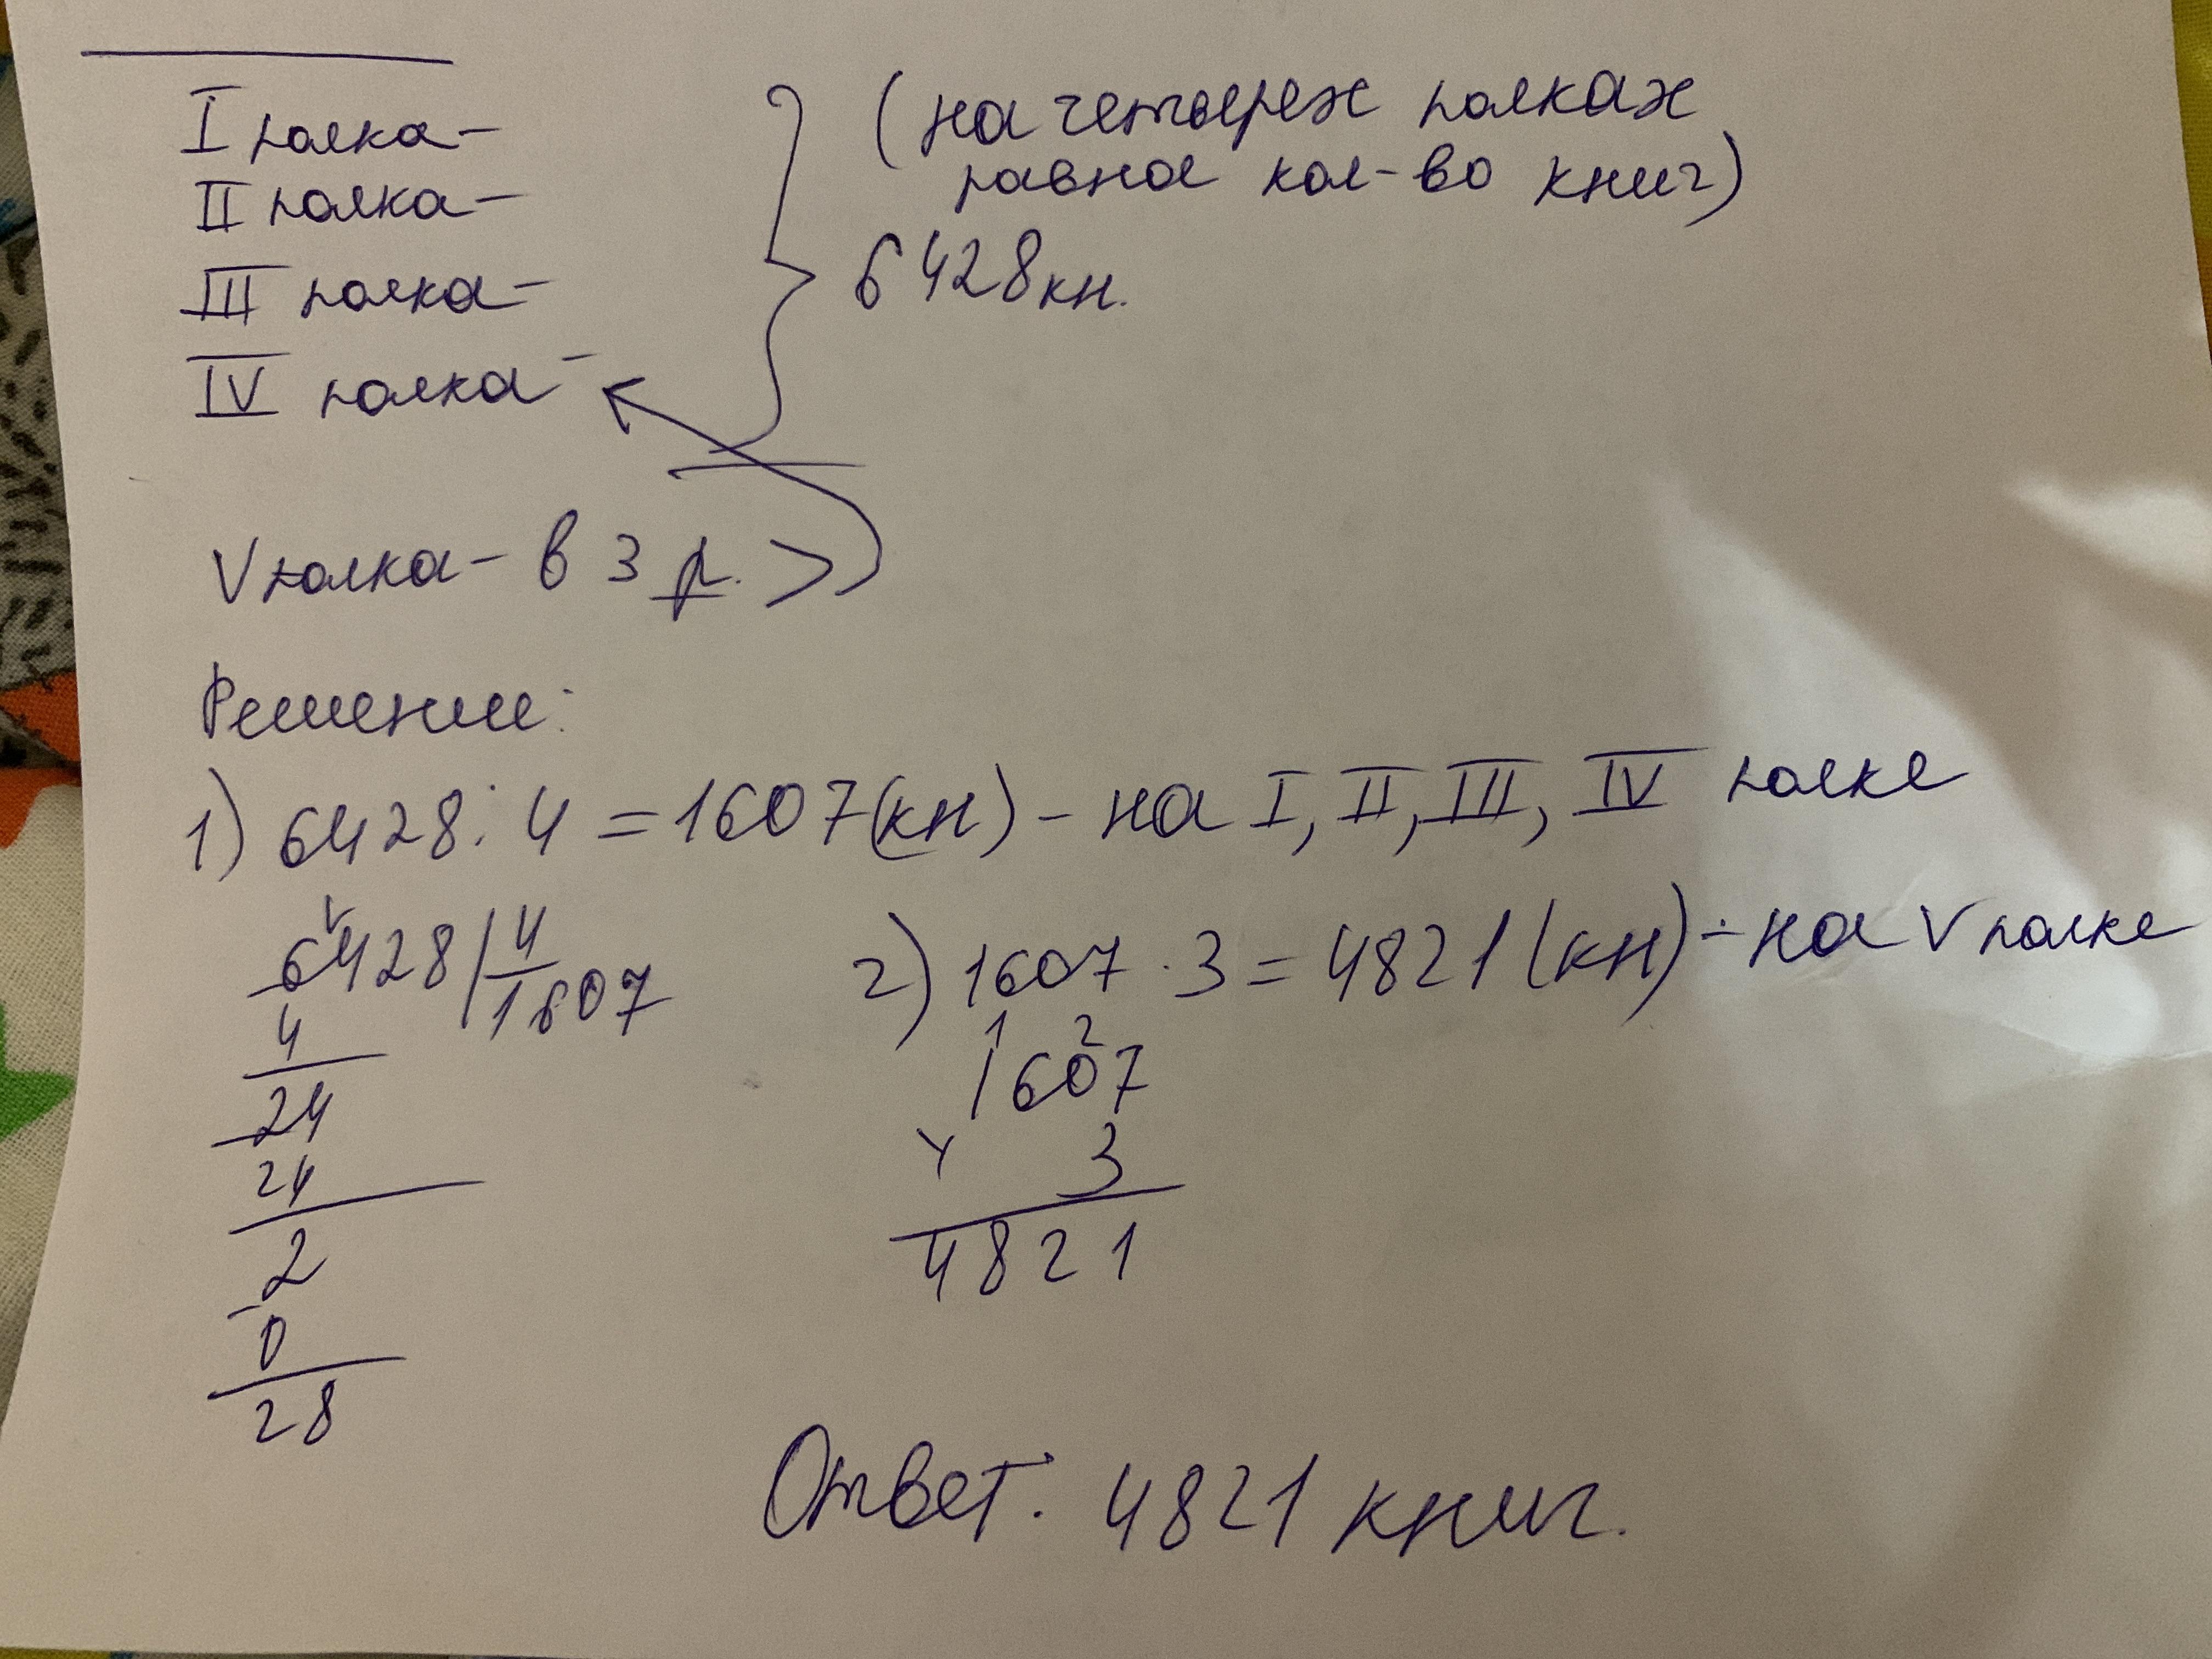 I полка-
II полка-
III полка-
IV полка-
(на четырех полках
равное кол-во книг)
6428кн.
V полка- в 3 р. >
Решение:
1) 6428:4=1607(кн)- на I, II, III, IV полке
6428|4
1607
4
24
24
2
0
28
2) 1607·3=4821(кн)-на V полке
1 2
1607
× 3
4821
Ответ: 4821 книг.